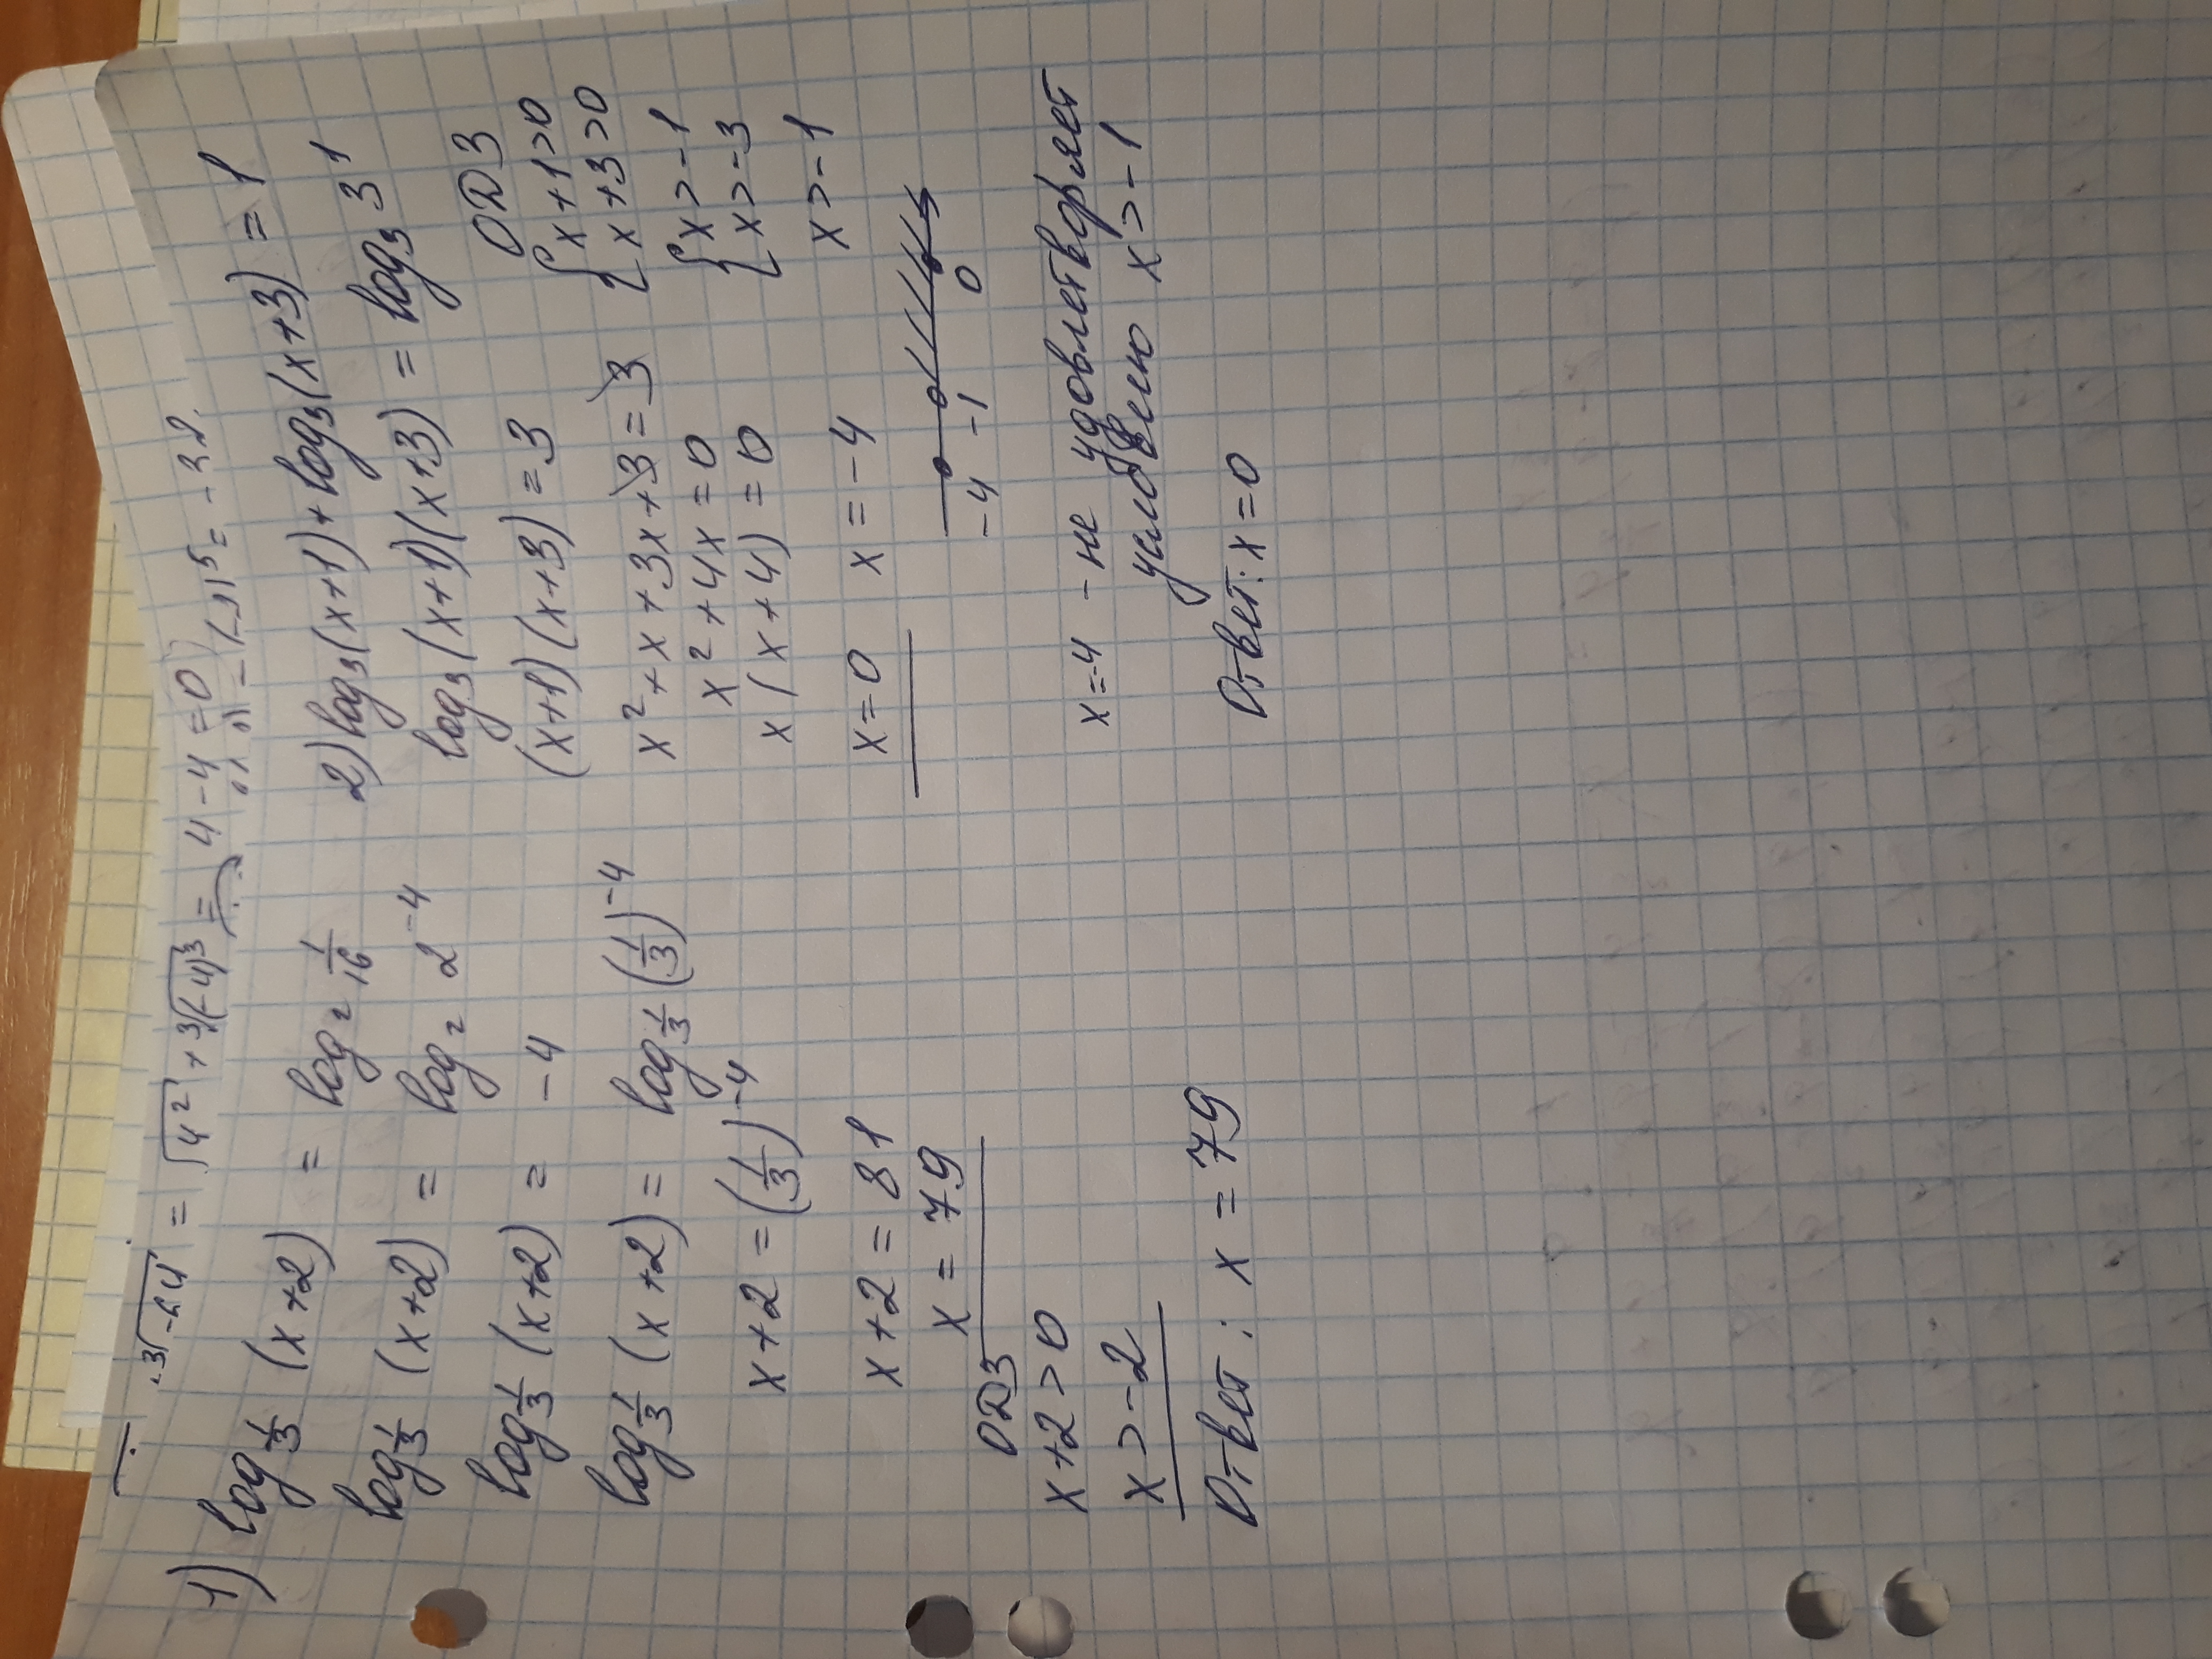 ³√-64 = √4² + ³√(-4)³ = 4 - 4 = 0
= (-2)⁵ = -32.
1) log 1/3 (x+2) = log₂ 1/16
log 1/3 (x+2) = log₂ 2⁻⁴
log 1/3 (x+2) = -4
log 1/3 (x+2) = log 1/3 (1/3)⁻⁴
x+2 = (1/3)⁻⁴
x+2 = 81
x = 79
ОДЗ
x+2>0
x>-2
Ответ: x = 79
2) log₃(x+1)+log₃(x+3) = 1
log₃(x+1)(x+3) = log₃ 3¹
(x+1)(x+3) = 3
x²+x+3x+3=3
x²+4x=0
x(x+4)=0
x=0 x=-4
ОДЗ
{x+1>0
{x+3>0
{x>-1
{x>-3
x>-1
-4 -1 0
x=-4 - не удовлетворяет
условию x>-1
Ответ: x=0